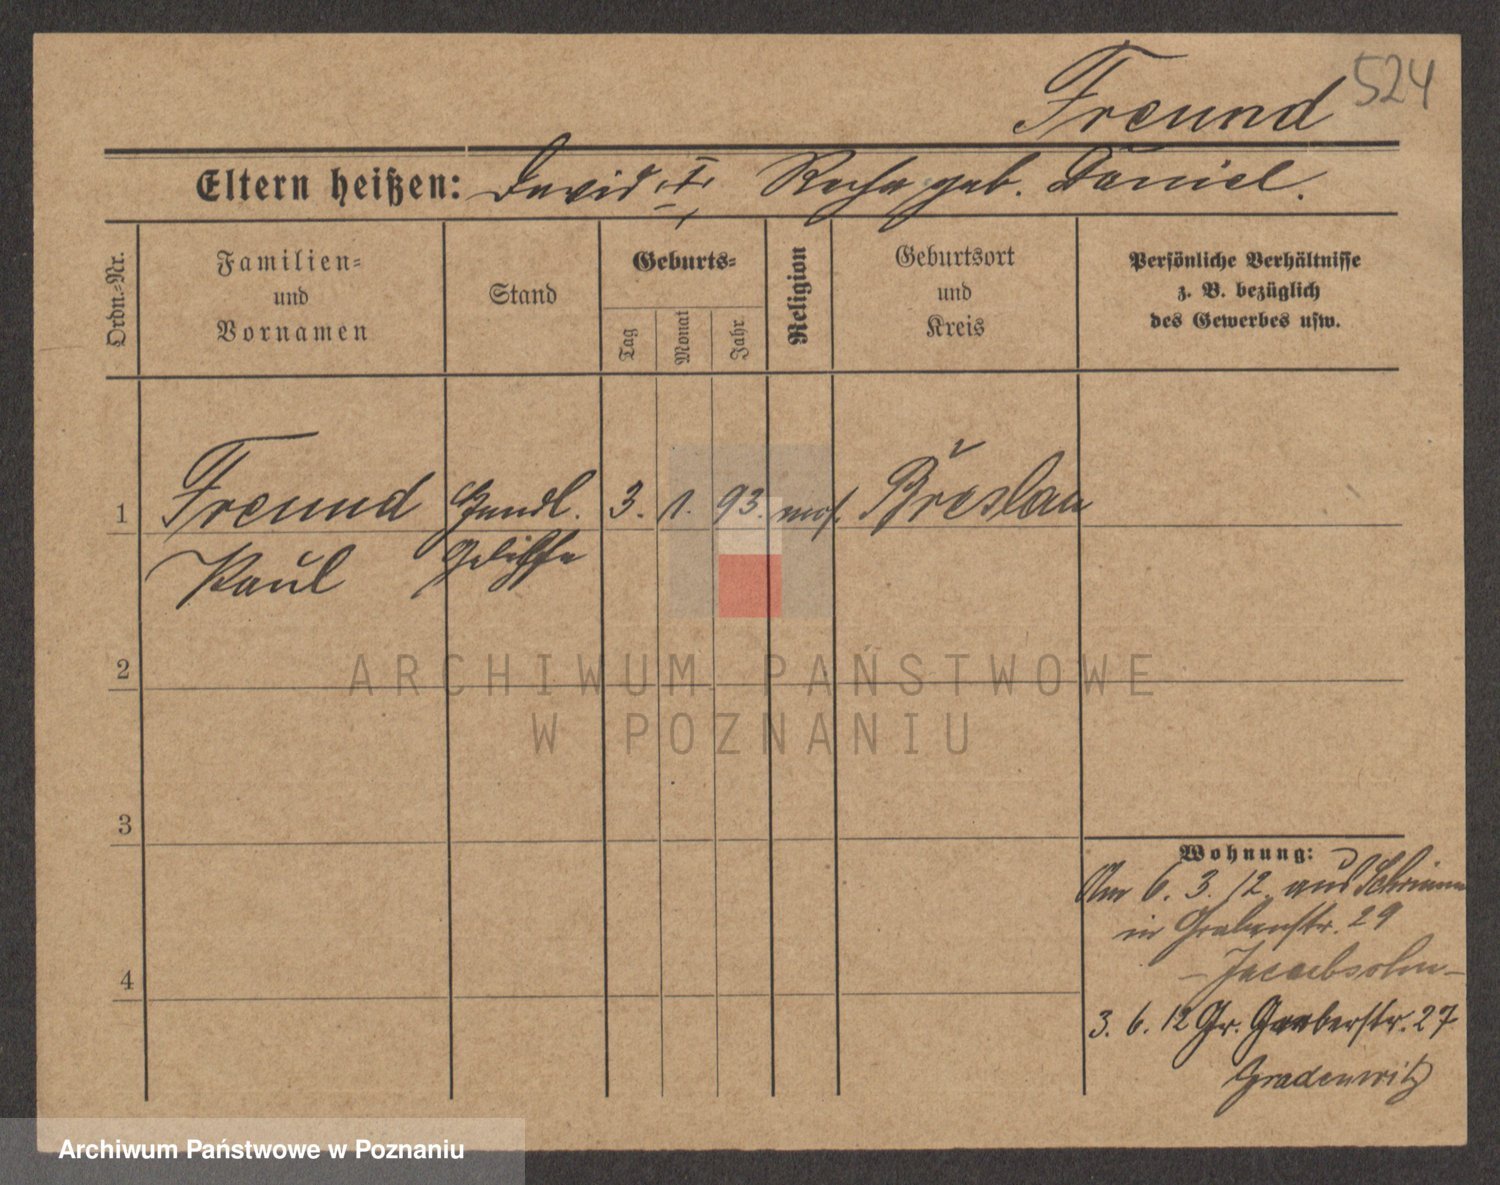 524
Freund
Eltern heißen: David I, Rosa geb. Daniel.
Ordn.-Nr.
Familien-
und
Vornamen
Stand
Geburts-
Tag
Monat
Jahr
Religion
Geburtsort
und
Kreis
Persönliche Verhältnisse
z. B. bezüglich
des Gewerbes usw.
1 Freund Handl. 3. 1. 93. mos. Breslau
Paul Gehilfe
2
3
4
Wohnung:
Am 6. 3. 12. aus Schrimm
in Grabenstr. 29
- Jacobsohn -
3. 6. 12 Gr. Gerberstr. 27
Gradenwitz
ARCHIWUM PAŃSTWOWE
W POZNANIU
Archiwum Państwowe w Poznaniu